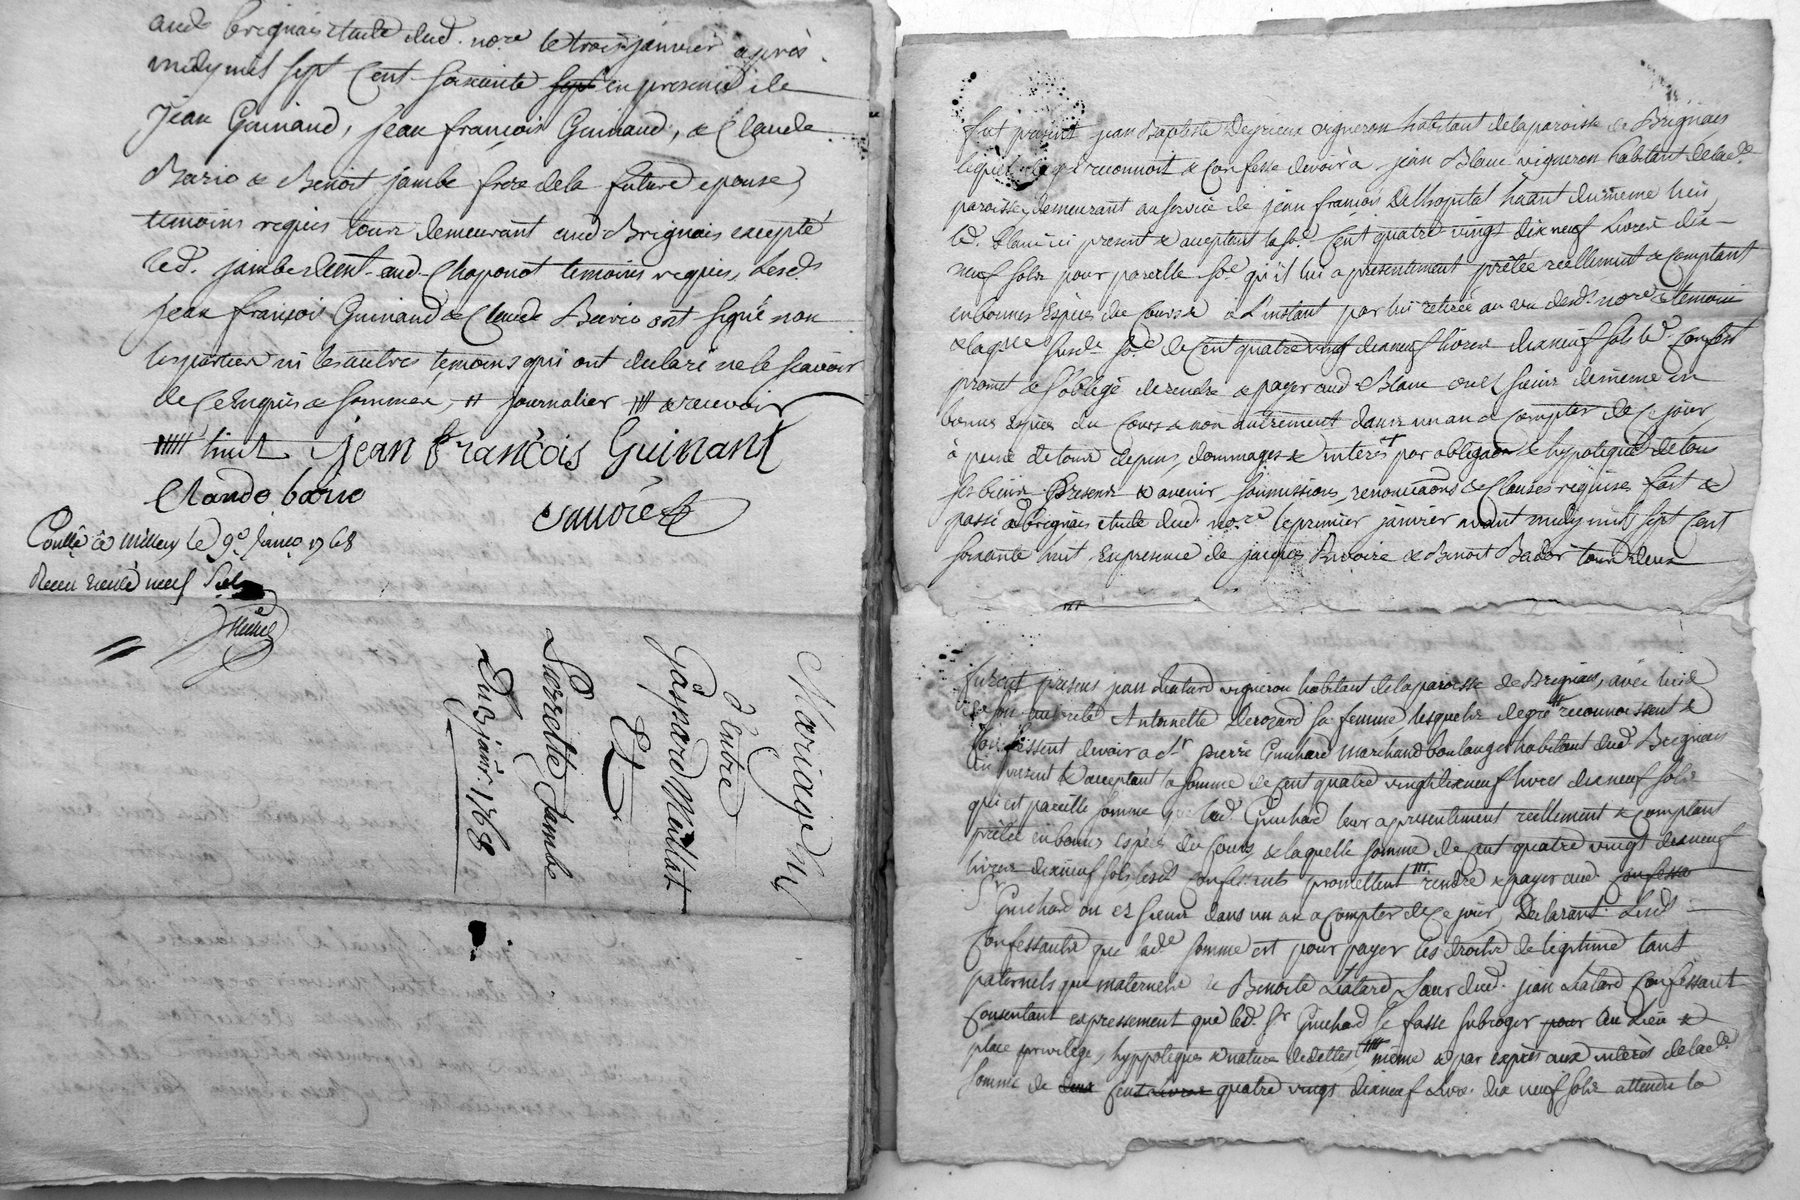 aud. brignais etude dud. nore. le trois janvier après
midy mil sept cent soixante sept en presence de
Jean Guinand, jean françois Guinand, & Claude
Bario & Benoit jambe frere de la future epouse,
temoins requis tous demeurant aud. Brignais excepté
led. jambe aud. Chaponot temoins requis, lesds.
jean françois Guinand & Claude Bario ont signé non
les parties ni les autres temoins qui ont declaré ne le sçavoir
de ce enquis & sommez, journalier & recevoir
huit jean francois Guinant
Claude bario
Conllé à millery le 9e. Janvr. 1768
Recu neuf sols
Mariage
d'Entre
Gaspard Millat
Et
Pierrette Jambe
Du 3 janvr. 1768
fut present jean Baptiste Deyrieux vigneron habitant de la paroisse de Brignais
lequel reconnoit & confesse devoir à jean Blanc vigneron habitant de lade.
paroisse, demeurant au service de jean françois Delhopital du meme lieu
led. Blanc ici present & acceptant la se. Cent quatre vingt dix neuf Livres dix
neuf sols pour pareille se. qu'il lui a presentement prêtée reellement & comptant
en bonnes Espèces du Cours & a L'instant par lui retirée au vu desd. nore. & temoins
& laqlle susde. se. de Cent quatre vingt dix neuf livres dix neuf sols led. Confest.
promet & s'oblige de rendre & payer aud. Blanc ou es siens de meme en
bonnes Espèces du Cours & non autrement dans un an a compter de Ce jour
à peine de tous depens, dommages & interest par obligaon. & hypoteque de tous
ses biens Presens & avenir soumissions, renonciaons & Clauses requises fait &
passé à Brignais etude dud. nore. le premier janvier avant midy mil sept Cent
soixante huit En presence de jacques & Benoit tous deux
furent presens jean Liatard vigneron habitant de la paroisse de Brignais, avec lui &
de son autorité Antoinette sa femme lesquels de gré reconnoissent &
Confessent devoir a Sr. pierre Guichard marchand boulanger habitant dud. Brignais
ici present & acceptant la somme de Cent quatre vingt dix neuf livres dix neuf sols
qui est pareille somme que led. Guichard leur a presentement reellement & comptant
prêtée en bonnes espèces du Cours, & laquelle somme de Cent quatre vingt dix neuf
livres dix neuf sols, lesd. Confessants promettent rendre & payer aud. Confessa
Sr. Guichard ou es siens dans un an a compter de Ce jour, Declarant lesd.
Confessants que lade. somme est pour payer les droits de legitime tant
paternels que maternels de Benoite Liatard sœur dud. jean Liatard Confessant
Consentant expressement que led. Sr. Guichard se fasse subroger pour au Lieu &
place privilege, hyppoteques & nature de dettes, même & par exprès aux interès de lade.
somme de deux Cent livres quatre vingt dix neuf Livres dix neuf sols attendu la